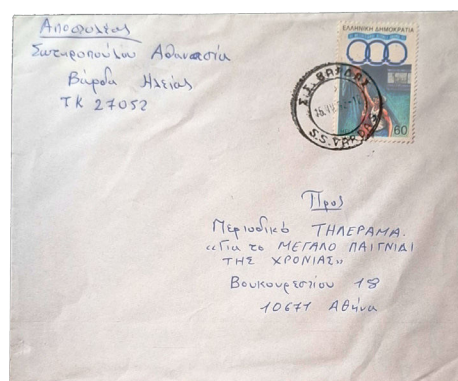 Αποστολέας
Σωτηροπούλου Αθανασία
Βάρδα Ηλείας
ΤΚ 27052
ΕΛΛΗΝΙΚΗ ΔΗΜΟΚΡΑΤΙΑ
60
Σ.Σ. ΒΑΡΔΑΣ
S.S. VARDAS
Προς
Περιοδικό ΤΗΛΕΡΑΜΑ
«Για το ΜΕΓΑΛΟ ΠΑΙΓΝΙΔΙ
ΤΗΣ ΧΡΟΝΙΑΣ»
Βουκουρεστίου 18
10671 Αθήνα